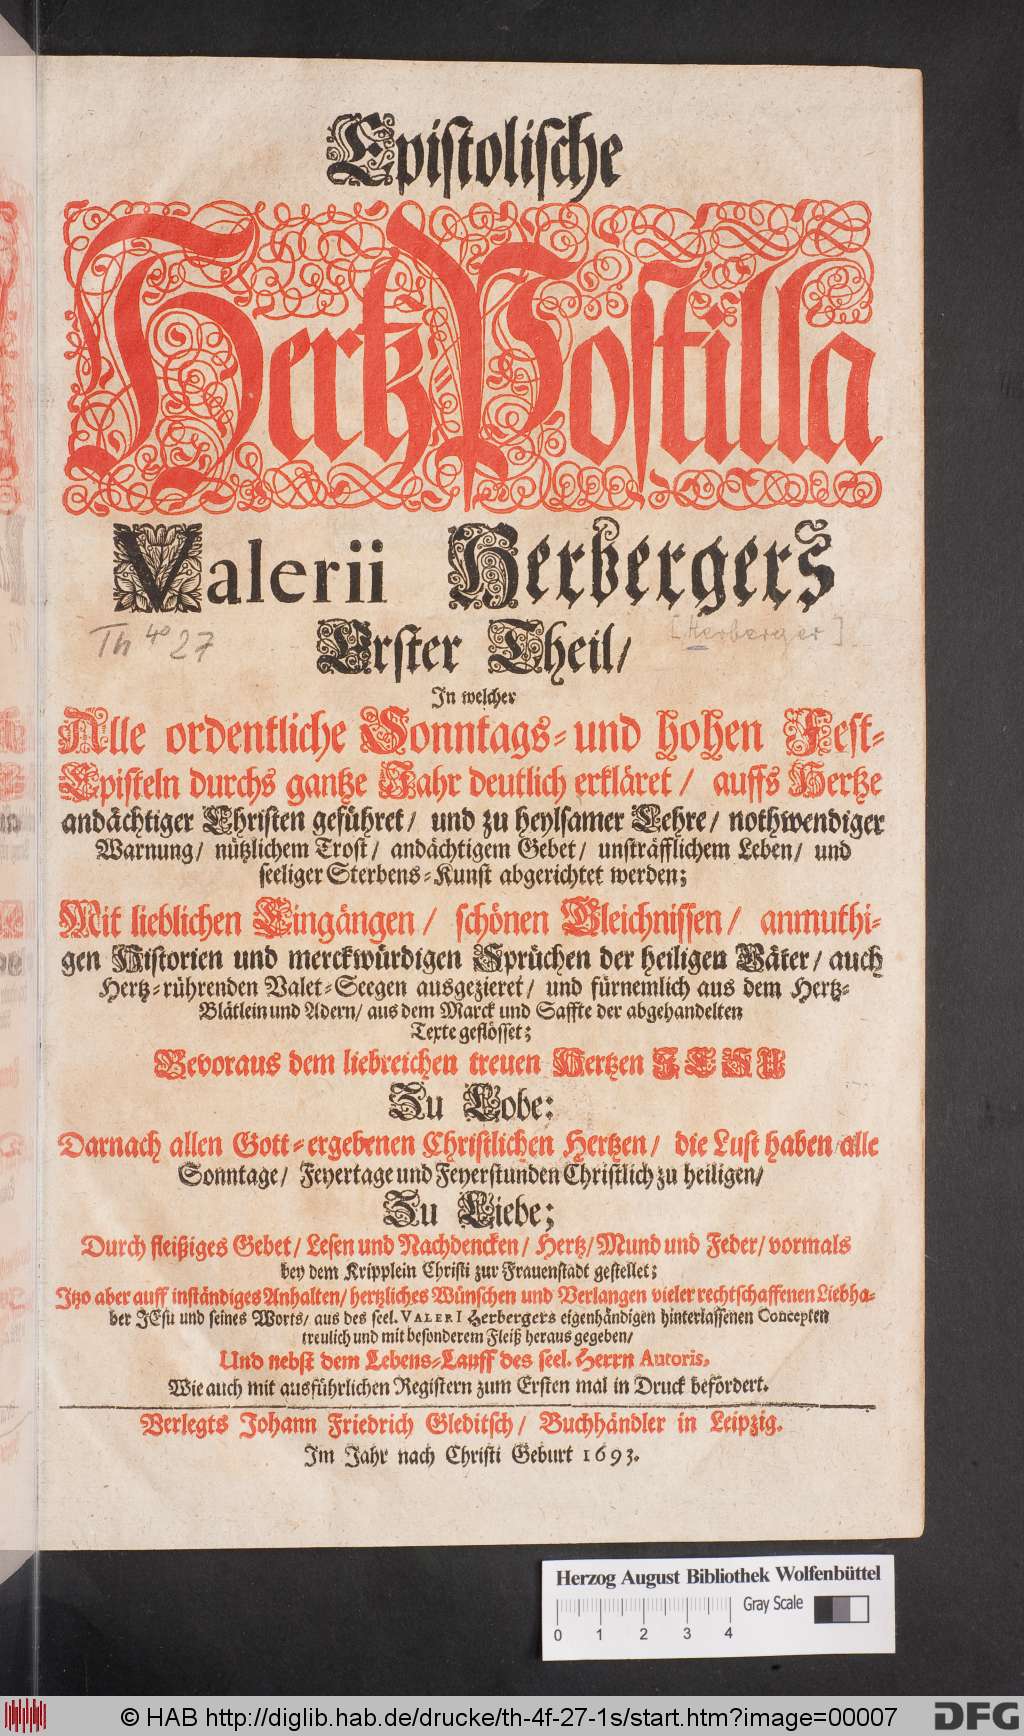 Epistolische
Hertz Postilla
Valerii Herbergers
Th 4° 27
[Herberger]
Erster Theil/
In welcher
Alle ordentliche Sonntags-und hohen Fest-
Episteln durchs gantze Jahr deutlich erkläret/ auffs Hertze
andächtiger Christen geführet/ und zu heylsamer Lehre/ nothwendiger
Warnung/ nützlichem Trost/ andächtigem Gebet/ unsträfflichem Leben/ und
seeliger Sterbens-Kunst abgerichtet werden;
Mit lieblichen Eingängen/ schönen Gleichnissen/ anmuthi-
gen Historien und merckwürdigen Sprüchen der heiligen Väter/ auch
Hertz-rührenden Valet-Seegen ausgezieret/ und fürnemlich aus dem Hertz-
Blätlein und Adern/ aus dem Marck und Saffte der abgehandelten
Texte geflösset;
Bevoraus dem liebreichen treuen Hertzen JESU
Zu Lobe;
Darnach allen Gott-ergebenen Christlichen Hertzen/ die Lust haben/alle
Sonntage/ Feyertage und Feyerstunden Christlich zu heiligen/
Zu Liebe;
Durch fleißiges Gebet/ Lesen und Nachdencken/ Hertz/ Mund und Feder/ vormals
bey dem Kripplein Christi zur Frauenstadt gestellet;
Itzo aber auff inständiges Anhalten/ hertzliches Wünschen und Verlangen vieler rechtschaffenen Liebha-
ber JEsu und seines Worts/ aus des seel. VALERI Herbergers eigenhändigen hinterlassenen Concepten
treulich und mit besonderem Fleiß heraus gegeben/
Und nebst dem Lebens-Lauff des seel. Herrn Autoris,
Wie auch mit ausführlichen Registern zum Ersten mal in Druck befördert.
Verlegts Johann Friedrich Gleditsch/ Buchhändler in Leipzig.
Im Jahr nach Christi Geburt 1693.
Herzog August Bibliothek Wolfenbüttel
Gray Scale
0 1 2 3 4
© HAB http://diglib.hab.de/drucke/th-4f-27-1s/start.htm?image=00007
DFG